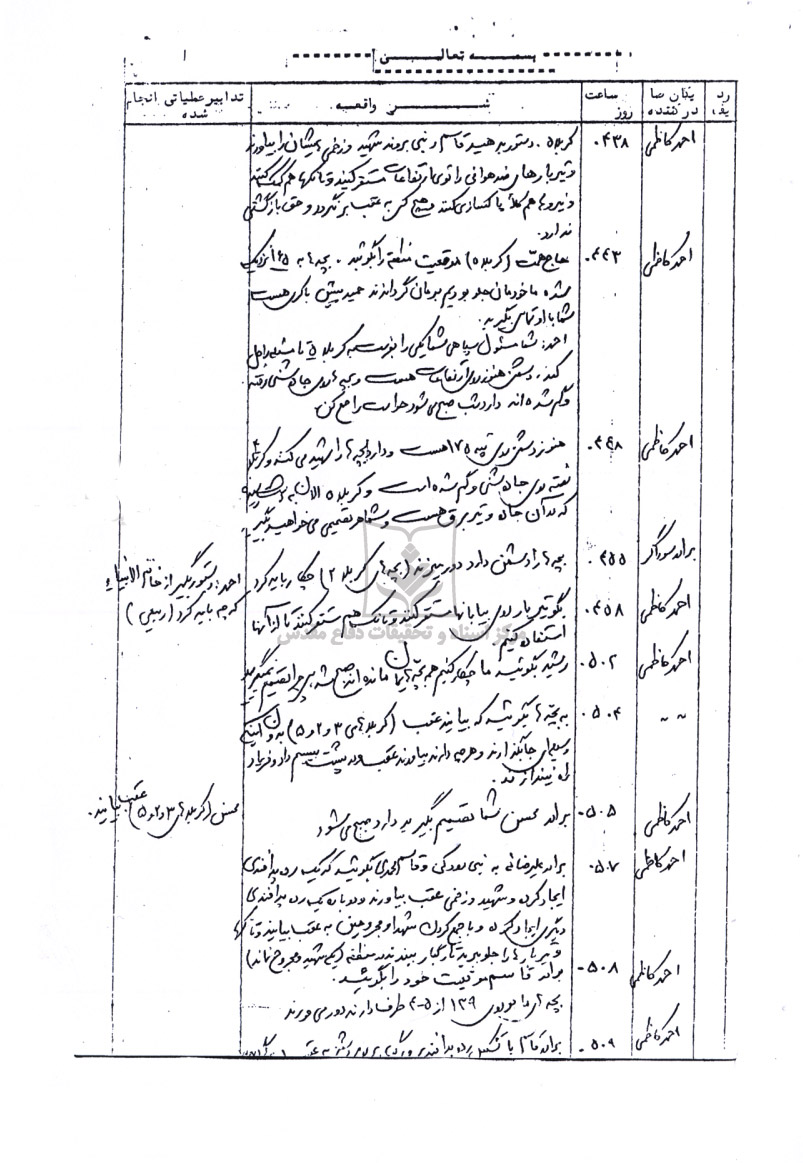 بسمه تعالی
۱
رد یف
یگان ها در کننده
ساعت روز
شرح واقعه
تدابیر عملیاتی انجام شده
احمد کاظمی
۰۴۳۸
کربلا ۵. دستور بدهید قاسم و نبی بروند شهید و زخمی هایشان را بیاورند
و تیربارهای ضد هوائی را توی ارتفاعات مستقر کنید و تانکها هم کمک کنند
و نیروها هم کلاً پاکسازی کنند هیچ کس به عقب برنگردد و حق بازگشتی
ندارد.
احمد کاظمی
۰۴۴۳
حاج همت (کربلا ۵) موقعیت منطقه را بگوئید. بچه ها به ۶۵ نزدیک
شده ما خودمان جلو بودیم برمان گرداندند حمید پیش باکری هست
شما با او تماس بگیرید.
احمد: شما مسئول سپاهی شما یکی را بفرست به کربلا ۵ تا مسئله را حل
کند. دشمن هنوز روی ارتفاعات هست و بچه ها روی جاده شنی رفته
و گم شده اند دارد شب صبح می شود حواست را جمع کن
احمد کاظمی
۰۴۴۸
هنوز دشمن روی تپه ۱۷۵ هست و دارد بچه ها را شهید می کنند و کربلا ۳
رفته روی جاده شنی و گم شده است و کربلا ۵ الان به
که در آن جاده و تیر برق هست و شما هر تصمیمی می خواهید بگیرید
برادر سوداگر
۰۴۵۵
بچه ها را دشمن دارد دور میزند (بچه های کربلا ۲) چکار باید کرد
احمد: دستور بگیر از خاتم الانبیاء
که چه باید کرد (ربیعی)
احمد کاظمی
۰۴۵۸
بگو تیربار روی بیابانها مستقر کنند و تانک هم مستقر کنند تا از آنها
استفاده کنیم
مرکز اسناد و تحقیقات دفاع مقدس
احمد کاظمی
۰۵۰۲
رشید بگوئید ما چکار کنیم همه بچه هایمان مانده اند صبح شد پس چرا تصمیم نمیگیرید
〃 〃
۰۵۰۴
به بچه ها بگوئید که بیایند عقب (کربلاهای ۳ و ۲ و ۵) بدون اینکه
وسیله ای جا بگذارند و هر چه دارند بیاورند عقب و در پشت بیسیم داد و فریاد
راه نیندازند.
احمد کاظمی
۰۵۰۵
برادر محسن شما تصمیم بگیرید دارد صبح می شود
محسن (کربلاهای ۳ و ۲ و ۵) عقب بیایند.
احمد کاظمی
۰۵۰۷
برادر علیرضائی به نبی رودکی و قاسم محمدی بگوئید که یک رده پدافندی
ایجاد کرده و شهید و زخمی عقب بیاورند و دوباره یک رده پدافندی
دیگری ایجاد کرده و با جمع کردن شهدا و مجروحین به عقب بیایند و تانکها
و تیربارها را جلو ببرید تا رگبار ببندند در منطقه کسی شهید و مجروح نماند)
احمد کاظمی
۰۵۰۸
برادر قاسم موقعیت خود را بگوئید.
بچه های ما بر روی ۱۳۹ از ۵-۴ طرف دارند دور می خورند
احمد کاظمی
۰۵۰۹
برادر قاسم با تشکیل رده پدافندی و